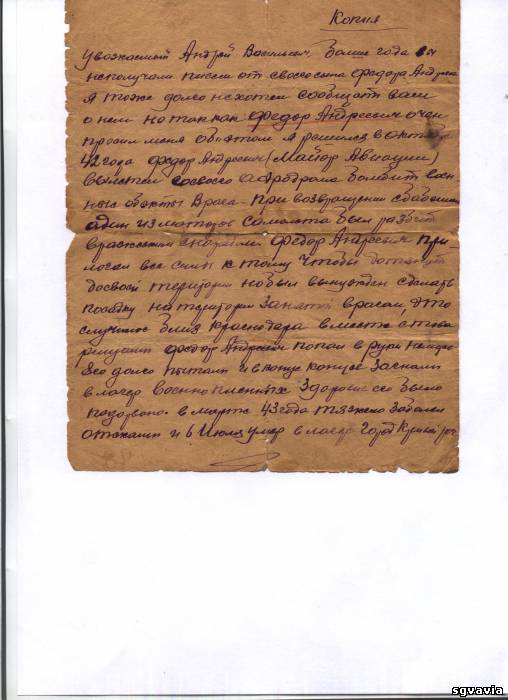 Копия
уважаемый Андрей Васильевич, Больше года вы
неполучали писем от своего сына Федора Андрее
Я тоже долго нехотел сообщать вам
о нем но так как Федор Андреевич очен
просил меня обэтом я решился в октяб
42 года Федор Андреевич (Майор Авиации)
вылетел сосвоего Аэродрома Бомбит воен
ные обекты Врага – при возвращении сбомбежки
один из моторов Самолета был разбит
вражеским снарядом Федор Андреевич при-
ложил все силы к тому чтобы дотянут
досвоей територии но был вынужден сделать
посадку на територии Занятой врагом, это
случилос близ Краснодара вместе с това
рищами Федор Андреевич попал в руки немцев
Его долго пытали и вконце концов Загнали
в лагер военно пленных Здоровье его было
подорвоно в марте 43 года тяжело Заболел
и 6 Июля умер в лагере Город Кривой рог
sgvavia